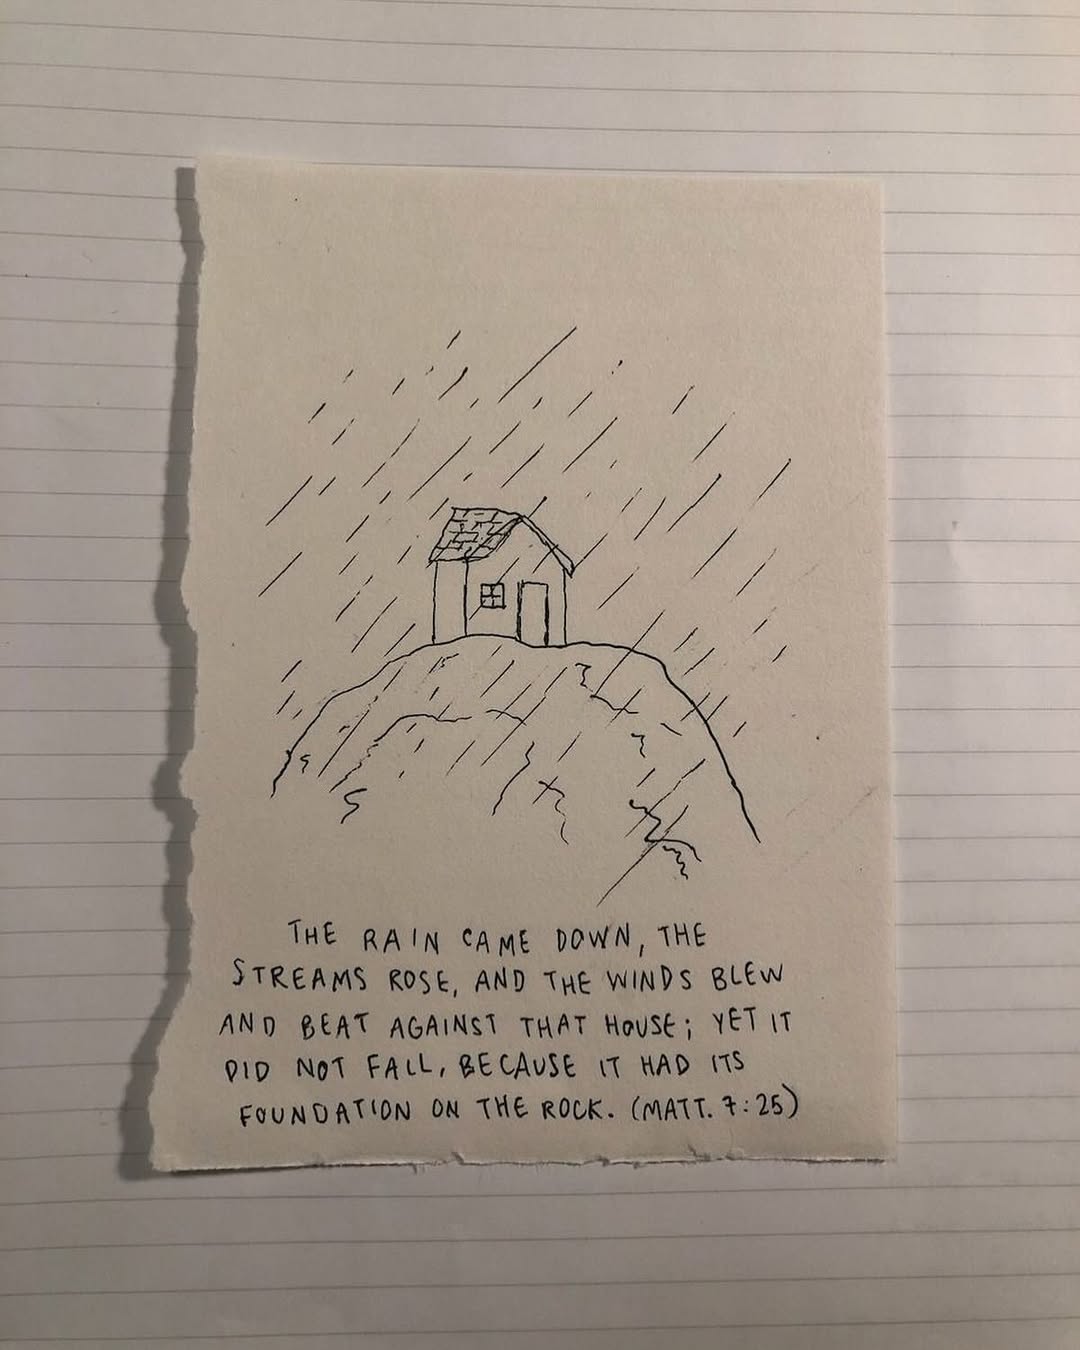 THE RAIN CAME DOWN, THE
STREAMS ROSE, AND THE WINDS BLEW
AND BEAT AGAINST THAT HOUSE; YET IT
DID NOT FALL, BECAUSE IT HAD ITS
FOUNDATION ON THE ROCK. (MATT. 7:25)